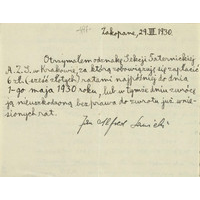 Zakopane, 29.III.1930.
Otrzymałem odznakę Sekcji Taternickiej
A.Z.S. w Krakowie, za którą zobowiązuję się zapłacić
6 zł. (sześć złotych) ratami najpóźniej do dnia
1-go maja 1930 roku, lub w tymże dniu zwrócę
ją nieuszkodzoną bez prawa do zwrotu już wnie-
sionych rat.
Jan Alfred